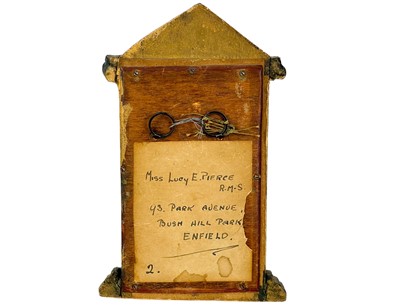 Miss Lucy E. Pierce
R.M.S
43. Park Avenue.
Bush Hill Park
Enfield.
2.